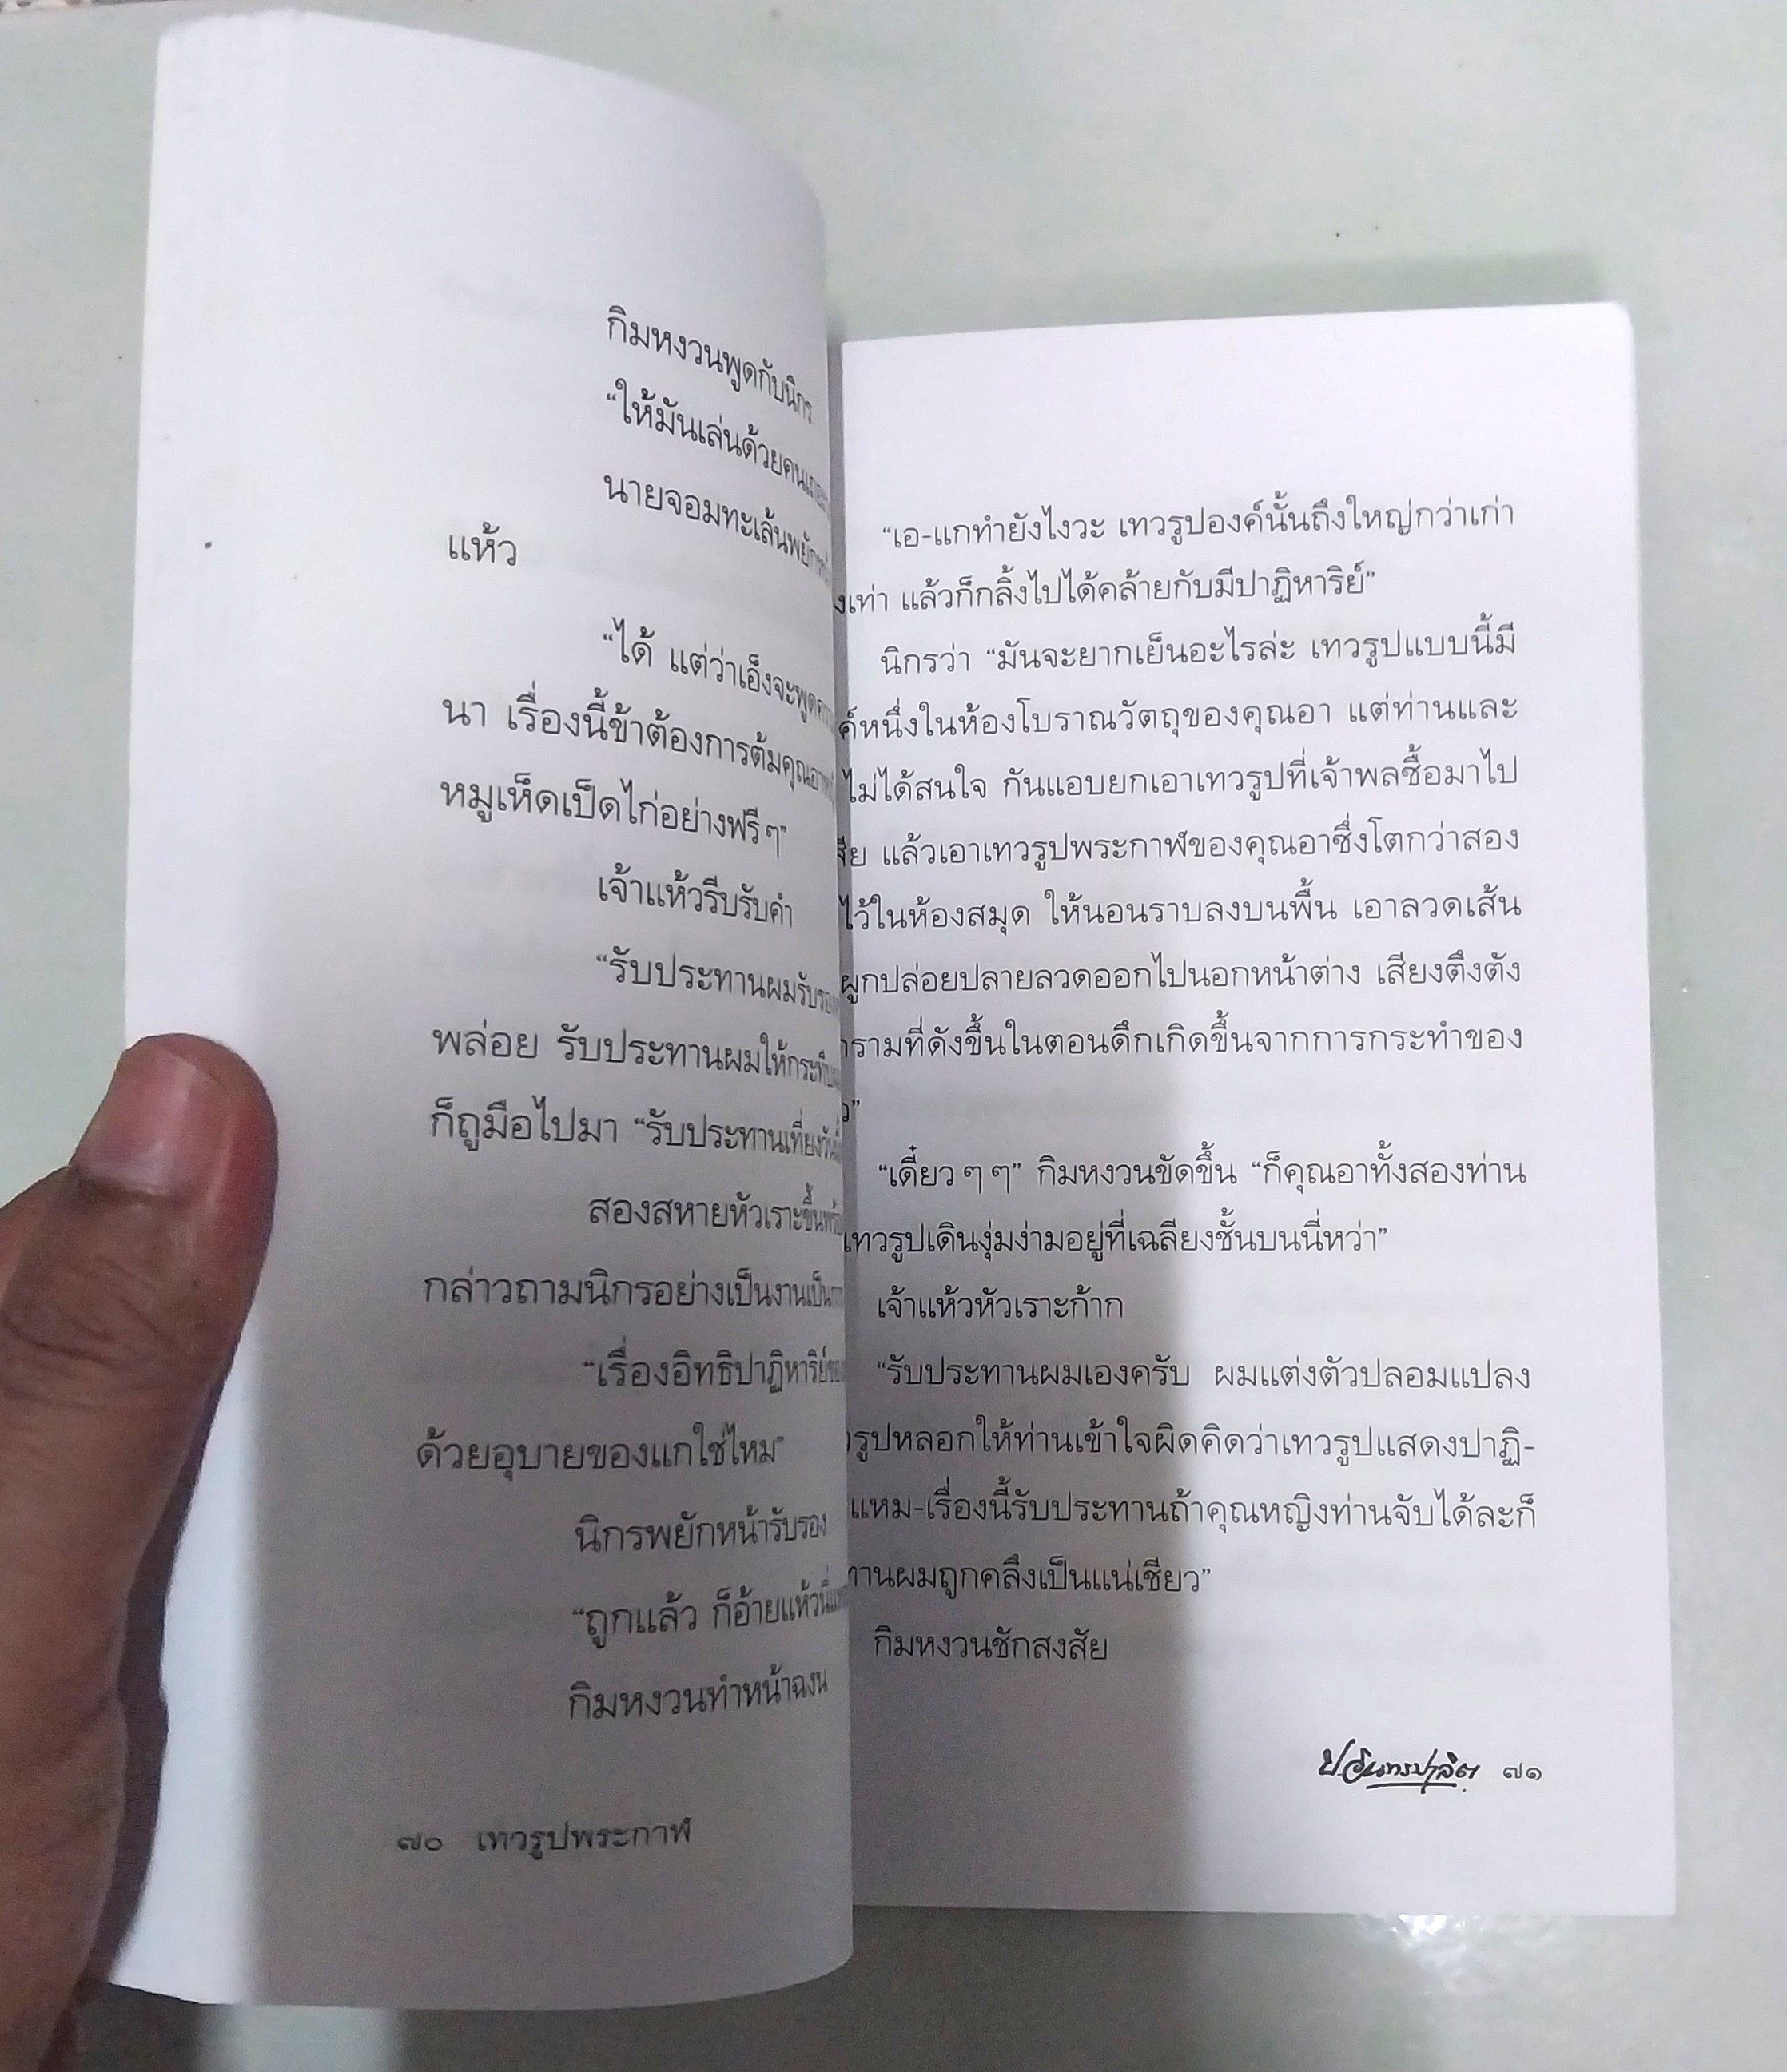 กิมหงวนพูดกับนิกร
“ให้มันเล่นด้วยคน
นายจอมทะเล้น
แห้ว
“ได้ แต่ว่าเอ็งจะพูด
นา เรื่องนี้ข้าต้องการต้มคุณอา
หมูเห็ดเป็ดไก่อย่างฟรีๆ”
เจ้าแห้วรีบรับคำ
“รับประทานผมรับรอง
พล่อย รับประทานผมให้กระทืบ
ก็ถูมือไปมา “รับประทานเที่ยง
สองสหายหัวเราะขึ้น
กล่าวถามนิกรอย่างเป็นงานเป็น
“เรื่องอิทธิปาฏิหาริย์
ด้วยอุบายของแกใช่ไหม”
นิกรพยักหน้ารับรอง
“ถูกแล้ว ก็อ้ายแห้วนี่
กิมหงวนทำหน้าฉงน
๗๐ เทวรูปพระกาฬ
“เอ-แกทำยังไงวะ เทวรูปองค์นั้นถึงใหญ่กว่าเก่า
งเท่า แล้วก็กลิ้งไปได้คล้ายกับมีปาฏิหาริย์”
นิกรว่า “มันจะยากเย็นอะไรล่ะ เทวรูปแบบนี้มี
ค์หนึ่งในห้องโบราณวัตถุของคุณอา แต่ท่านและ
ไม่ได้สนใจ กันแอบยกเอาเทวรูปที่เจ้าพลซื้อมาไป
สีย แล้วเอาเทวรูปพระกาฬของคุณอาซึ่งโตกว่าสอง
ไว้ในห้องสมุด ให้นอนราบลงบนพื้น เอาลวดเส้น
ผูกปล่อยปลายลวดออกไปนอกหน้าต่าง เสียงตึงตัง
รามที่ดังขึ้นในตอนดึกเกิดขึ้นจากการกระทำของ
ว”
“เดี๋ยวๆๆ” กิมหงวนขัดขึ้น “ก็คุณอาทั้งสองท่าน
เทวรูปเดินงุ่มง่ามอยู่ที่เฉลียงชั้นบนนี่หว่า”
เจ้าแห้วหัวเราะก้าก
“รับประทานผมเองครับ ผมแต่งตัวปลอมแปลง
วรูปหลอกให้ท่านเข้าใจผิดคิดว่าเทวรูปแสดงปาฏิ-
แหม-เรื่องนี้รับประทานถ้าคุณหญิงท่านจับได้ละก็
ทานผมถูกคลึงเป็นแน่เชียว”
กิมหงวนชักสงสัย
ป.อินทรปาลิต ๗๑